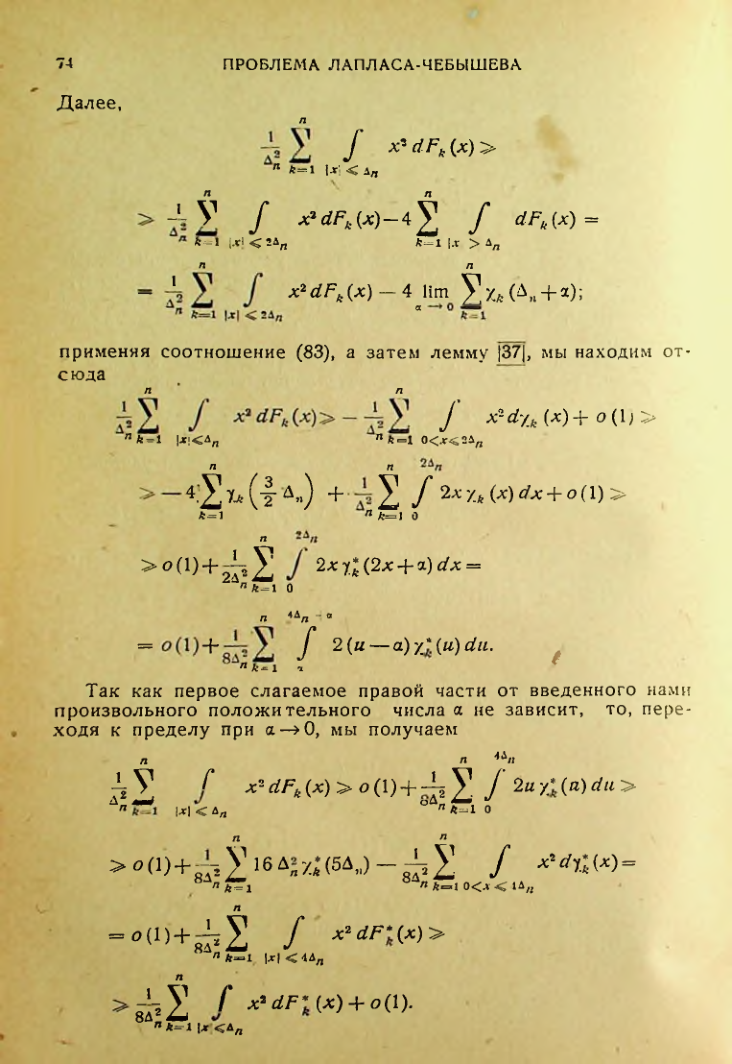 74 ПРОБЛЕМА ЛАПЛАСА-ЧЕБЫШЕВА
Далее,
$\frac{1}{\Delta_n^2} \sum_{k=1}^{n} \int_{|x| \leqslant \Delta_n} x^2 \, dF_k(x) \geqslant$
$\geqslant \frac{1}{\Delta_n^2} \sum_{k=1}^{n} \int_{|x| \leqslant 2\Delta_n} x^2 \, dF_k(x) - 4 \sum_{k=1}^{n} \int_{|x| > \Delta_n} dF_k(x) =$
$= \frac{1}{\Delta_n^2} \sum_{k=1}^{n} \int_{|x| \leqslant 2\Delta_n} x^2 \, dF_k(x) - 4 \lim_{\alpha \to 0} \sum_{k=1}^{n} \chi_k(\Delta_n + \alpha);$
применяя соотношение (83), а затем лемму |37|, мы находим от-
сюда
$\frac{1}{\Delta_n^2} \sum_{k=1}^{n} \int_{|x| \leqslant \Delta_n} x^2 \, dF_k(x) \geqslant - \frac{1}{\Delta_n^2} \sum_{k=1}^{n} \int_{0 < x \leqslant 2\Delta_n} x^2 \, d\chi_k(x) + o(1) \geqslant$
$\geqslant -4 \sum_{k=1}^{n} \chi_k \left( \frac{3}{2} \Delta_n \right) + \frac{1}{\Delta_n^2} \sum_{k=1}^{n} \int_0^{2\Delta_n} 2x \chi_k(x) \, dx + o(1) \geqslant$
$\geqslant o(1) + \frac{1}{2\Delta_n^2} \sum_{k=1}^{n} \int_0^{2\Delta_n} 2x \chi_k^*(2x + \alpha) \, dx =$
$= o(1) + \frac{1}{8\Delta_n^2} \sum_{k=1}^{n} \int_{\alpha}^{4\Delta_n + \alpha} 2(u - \alpha) \chi_k^*(u) \, du.$
Так как первое слагаемое правой части от введенного нами
произвольного положительного числа α не зависит, то, пере-
ходя к пределу при α → 0, мы получаем
$\frac{1}{\Delta_n^2} \sum_{k=1}^{n} \int_{|x| \leqslant \Delta_n} x^2 \, dF_k(x) \geqslant o(1) + \frac{1}{8\Delta_n^2} \sum_{k=1}^{n} \int_0^{4\Delta_n} 2u \chi_k^*(u) \, du \geqslant$
$\geqslant o(1) + \frac{1}{8\Delta_n^2} \sum_{k=1}^{n} 16 \Delta_n^2 \chi_k^*(5\Delta_n) - \frac{1}{8\Delta_n^2} \sum_{k=1}^{n} \int_{0 < x \leqslant 4\Delta_n} x^2 \, d\chi_k^*(x) =$
$= o(1) + \frac{1}{8\Delta_n^2} \sum_{k=1}^{n} \int_{|x| \leqslant 4\Delta_n} x^2 \, dF_k^*(x) \geqslant$
$\geqslant \frac{1}{8\Delta_n^2} \sum_{k=1}^{n} \int_{|x| \leqslant \Delta_n} x^2 \, dF_k^*(x) + o(1).$